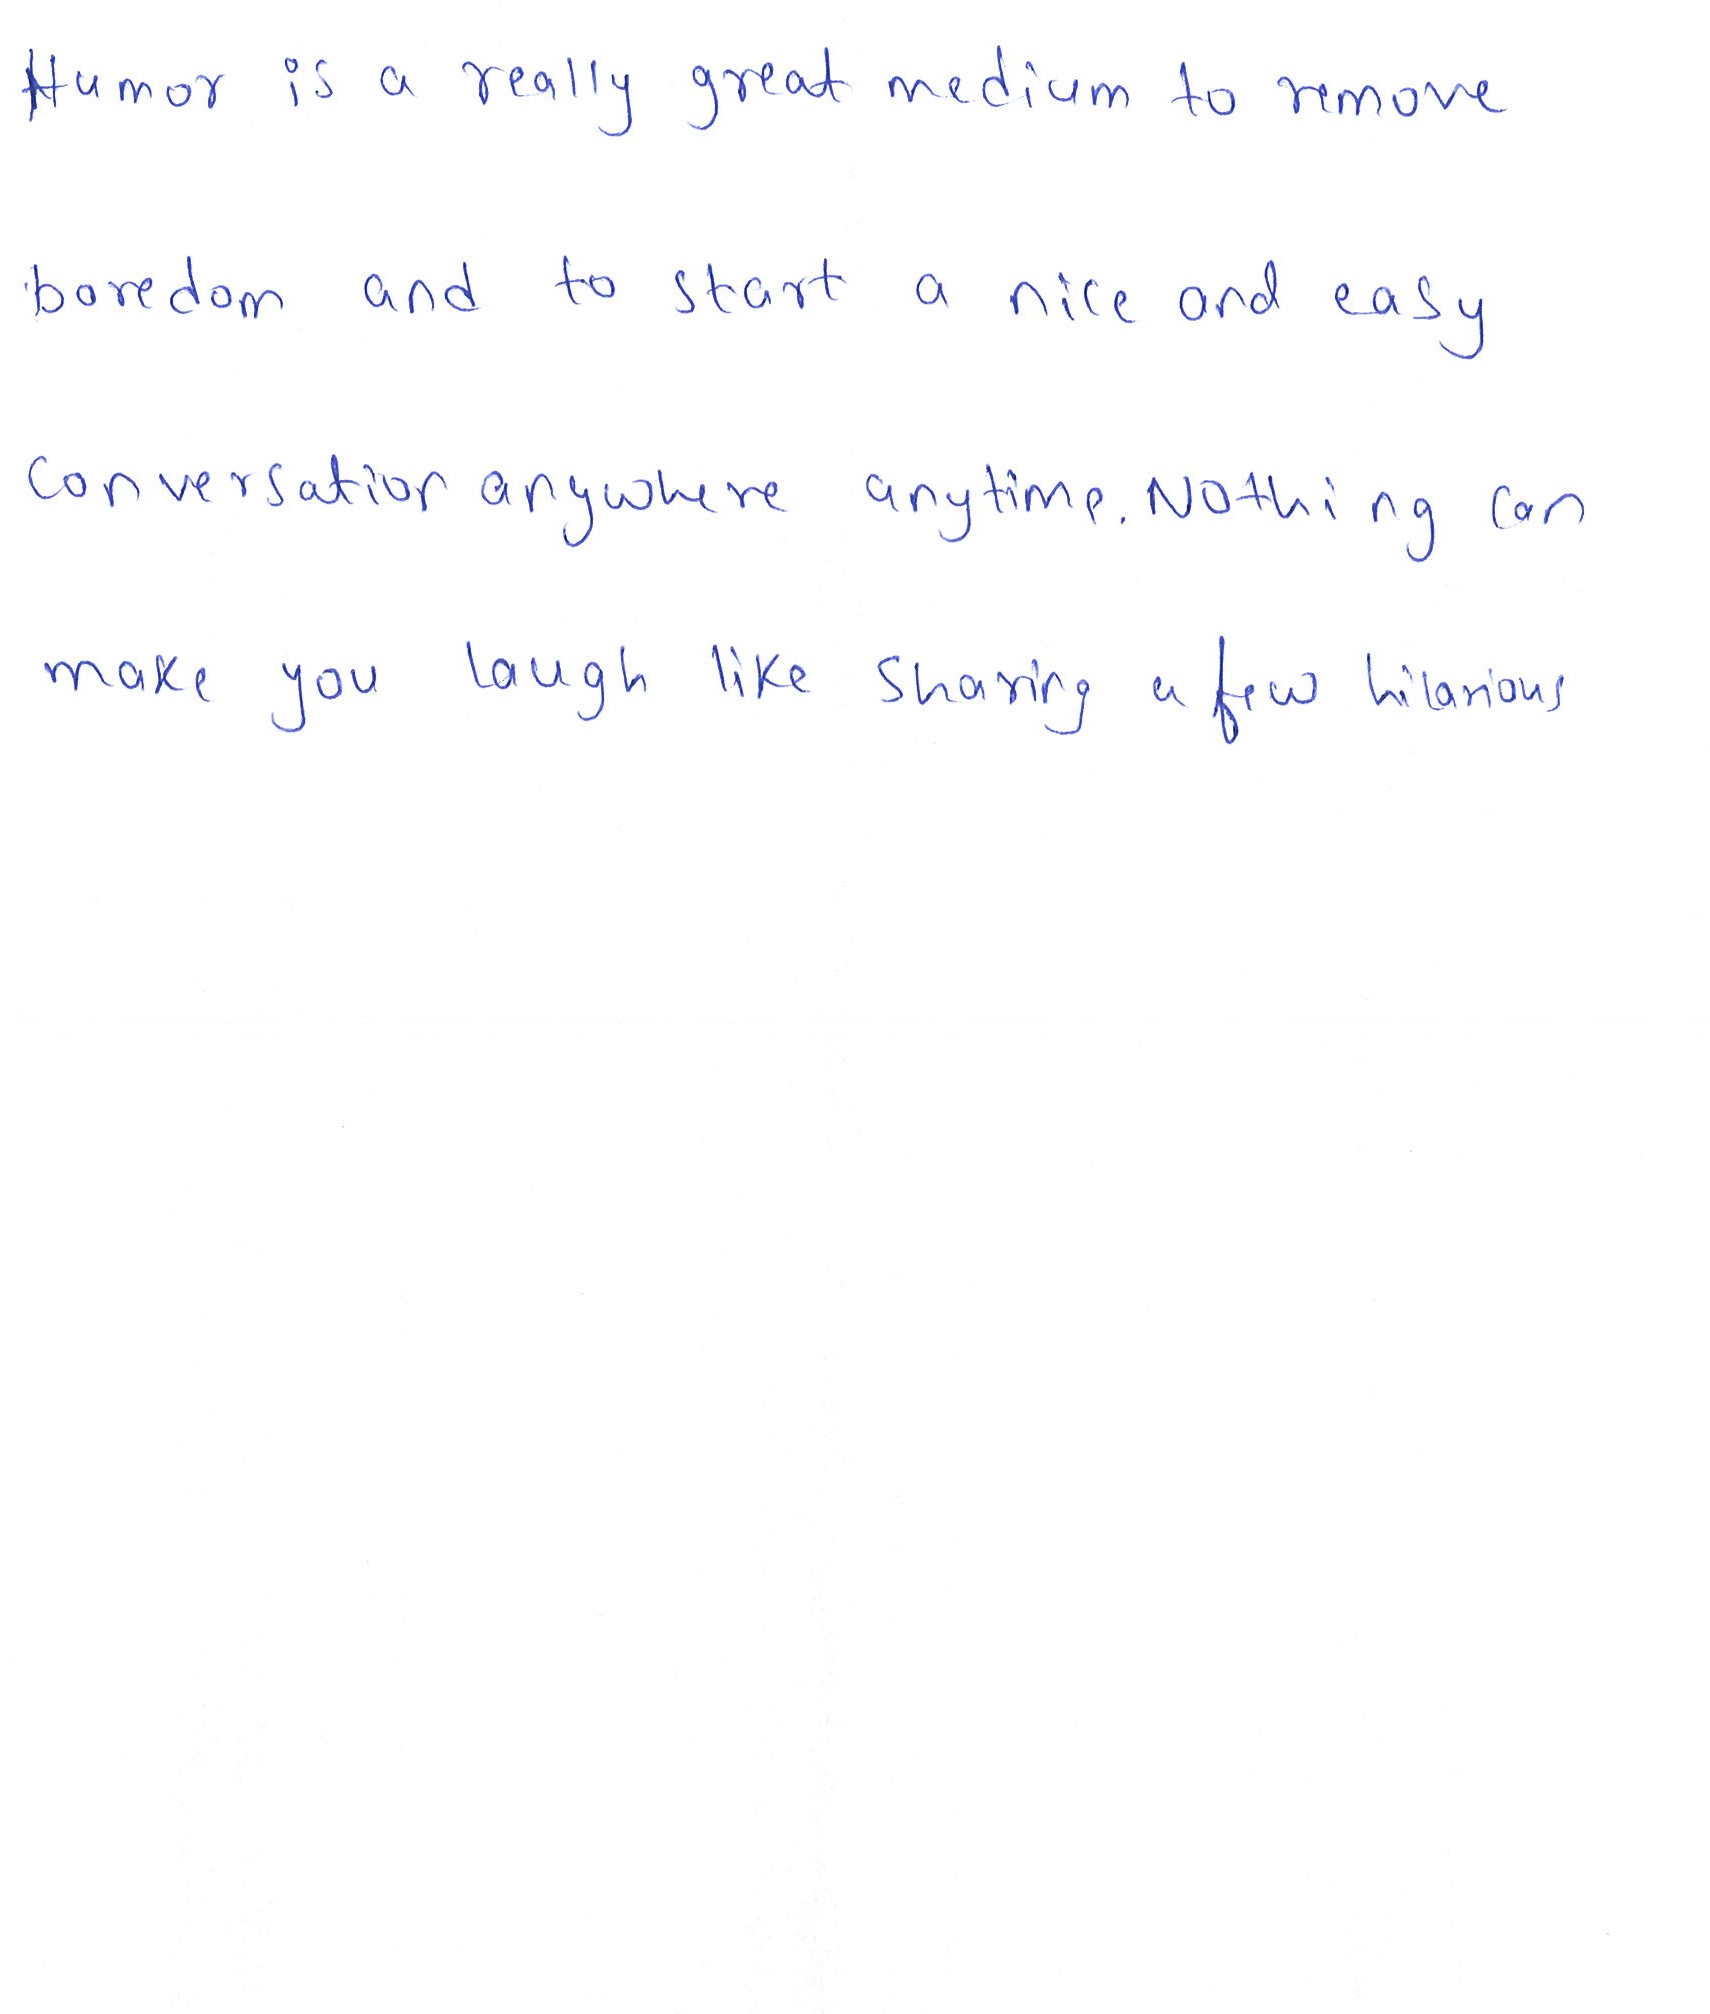 Humor is a really great medium to remove
boredom and to start a nice and easy
conversation anywhere anytime. Nothing can
make you laugh like sharing a few hilarious